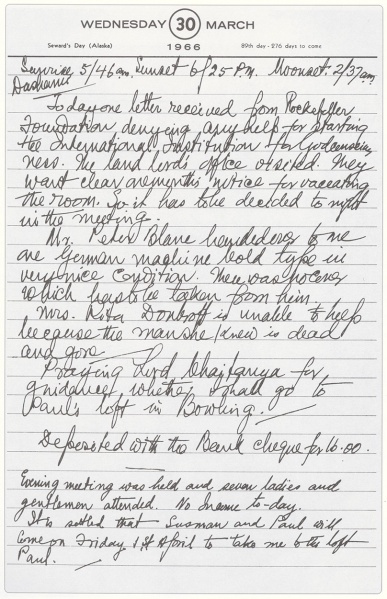 WEDNESDAY 30 MARCH
Seward's Day (Alaska) 1966 89th day - 276 days to come
Sunrise 5/46 am. Sunset 6/25 P.M. Moonset. 2/37 am
Dashami
Today one letter received from Rockefeller
Foundation, denying any help for starting
the International Institution for God consciou
ness. The land lord's office visited. They
want clear one month's notice for vacating
the room. So it has to be decided to night
in the meeting.
Mr. Peter Blane handed over to me
one German machine bold type in
very nice condition. There was no cover
which has to be taken from him
Mrs. Rita is unable to help
because the man she knew is dead
and gone
Praying Lord Chaitanya for
guidance, whether I shall go to
Paul's loft in Bowling.
Deposited with the Bank cheque for 16-00.
Evening meeting was held and seven ladies and
gentlemen attended. No Income to-day.
It is settled that Susman and Paul will
come on Friday 1st April to take me to the loft
Paul.